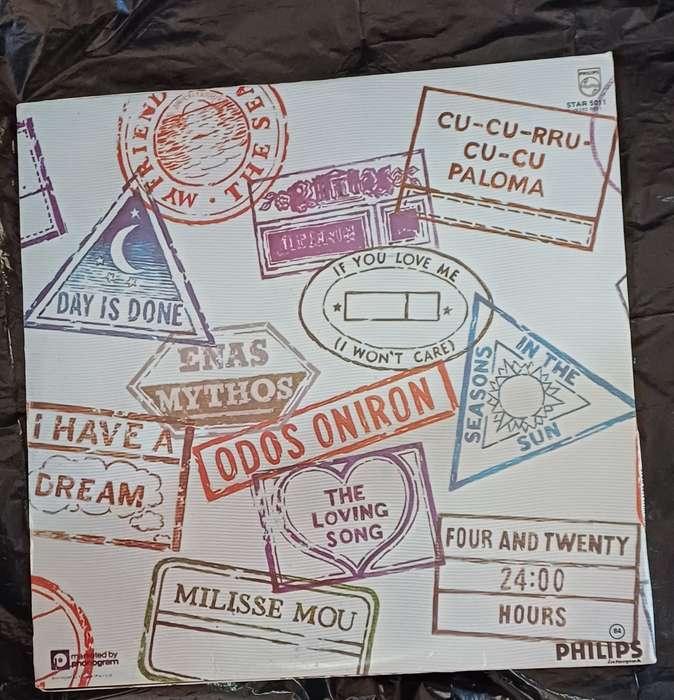 PHILIPS
STAR 5011
MY FRIEND THE SEA
CU-CU-RRU-
CU-CU
PALOMA
DAY IS DONE
IF YOU LOVE ME
(I WON'T CARE)
ENAS
MYTHOS
SEASONS
IN THE
SUN
I HAVE A
DREAM
ODOS ONIRON
THE
LOVING
SONG
FOUR AND TWENTY
24:00
HOURS
MILISSE MOU
marketed by
phonogram
84
PHILIPS